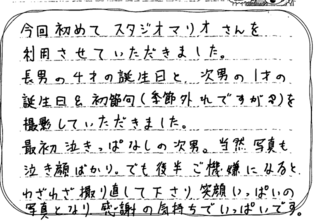 今回初めてスタジオマリオさんを
利用させていただきました。
長男の4才の誕生日と、次男の1才の
誕生日&初節句(季節外れですが💦)を
撮影していただきました。
最初泣きっぱなしの次男。当然写真も
泣き顔ばかり。でも後半ご機嫌になると
わざわざ撮り直して下さり笑顔いっぱいの
写真となり感謝の気持ちでいっぱいです。